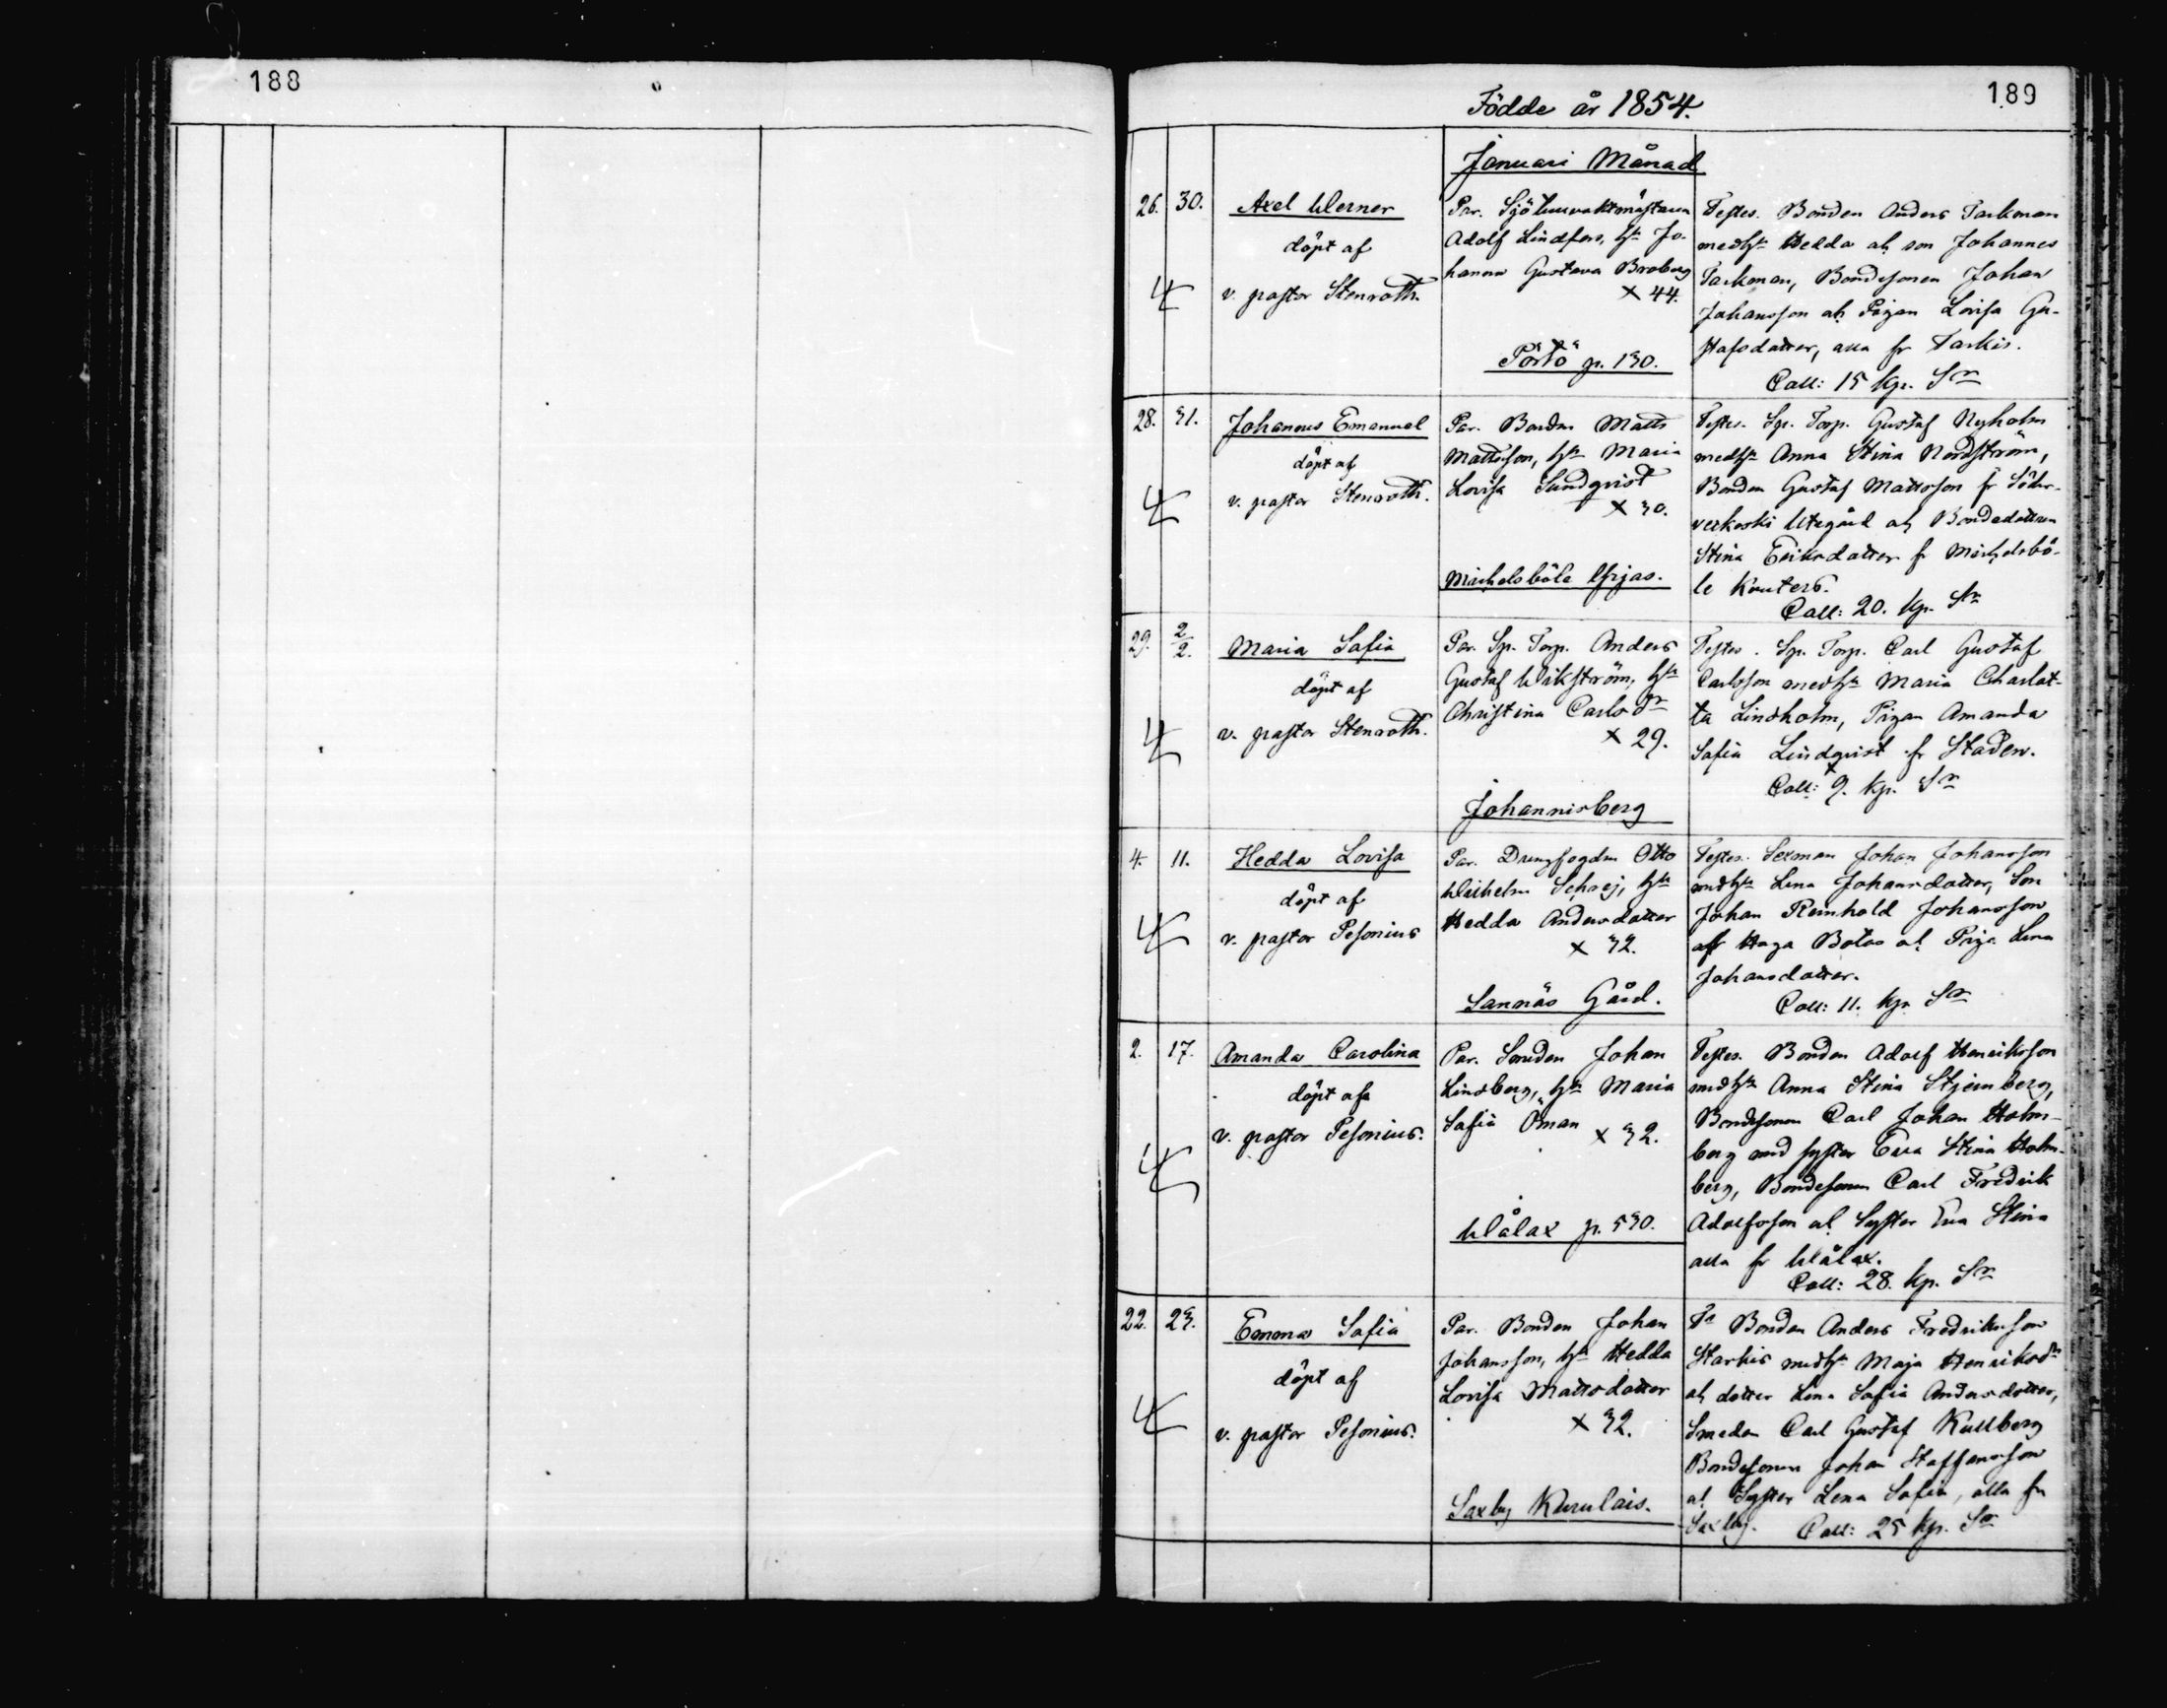 188
189
Födde år 1854.
Januari Månad
26. 30. Axel Werner
döpt af
v. pastor Stenroth.
Par. Sjötullvaktmästaren
Adolf Lindfors, hu Jo-
hanna Gustava Broberg
x 44.
Pörtö p. 130.
Testes. Bonden Anders Tarkman
med hu Hedda och son Johannes
Tarkman, Bondesonen Johan
Johansson och Pigan Lovisa Gu-
stafsdotter, alla fr Tarkis.
Coll: 15 kp. Sr
28. 31. Johannes Emanuel
döpt af
v. pastor Stenroth.
Par. Bonden Matts
Mattsson, hu Maria
Lovisa Sundqvist
x 30.
Michelsböle
Testes. Sp. Torp. Gustaf Nyholm
med hu Anna Stina Nordström,
Bonden Gustaf Mattsson fr Söder-
veckoski Utegård och Bondedottren
Stina Eriksdotter fr Michelsbö-
le Knuters.
Coll: 20. kp. Sr
29. 2/2. Maria Sofia
döpt af
v. pastor Stenroth.
Par. Sp. Torp. Anders
Gustaf Wikström, hu
Christina Carlsdr
x 29.
Johannisberg
Testes. Sp. Torp. Carl Gustaf
Carlsson med hu Maria Charlot-
ta Lindholm, Pigan Amanda
Sofia Lindqvist fr Staden.
Coll: 9. kp. Sr
4. 11. Hedda Lovisa
döpt af
v. pastor Pesonius
Par. Drengfogden Otto
Wilhelm Schrej, hu
Hedda Andersdotter
x 32.
Sannäs Gård.
Testes. Sexman Johan Johansson
med hu Lena Johansdotter, Son
Johan Reinhold Johansson
Haga Botas och Piga Lena
Johansdotter.
Coll: 11. kp. Sr
2. 17. Amanda Carolina
döpt af
v. pastor Pesonius.
Par. Smeden Johan
Lindberg, hu Maria
Sofia Öman x 32.
Wålax p. 530.
Testes. Bonden Adolf Henriksson
med hu Anna Stina Stjernberg,
Bondesonen Carl Johan Holm-
berg med syster Eva Stina Holm-
berg, Bondesonen Carl Fredrik
Adolfsson och Syster Eva Stina
alla fr Wålax.
Coll: 28. kp. Sr
22. 23. Emma Sofia
döpt af
v. pastor Pesonius.
Par. Bonden Johan
Johansson, hu Hedda
Lovisa Mattsdotter
x 32.
Saxby Kurulais.
Ts Bonden Anders Fredriksson
Starkis med hu Maja Henriksdr
och dotter Lena Sofia Andersdotter,
Smeden Carl Gustaf Kullberg
Bondesonen Johan Staffansson
och Syster Lena Sofia, alla fr
Saxby. Coll: 25 kp. Sr